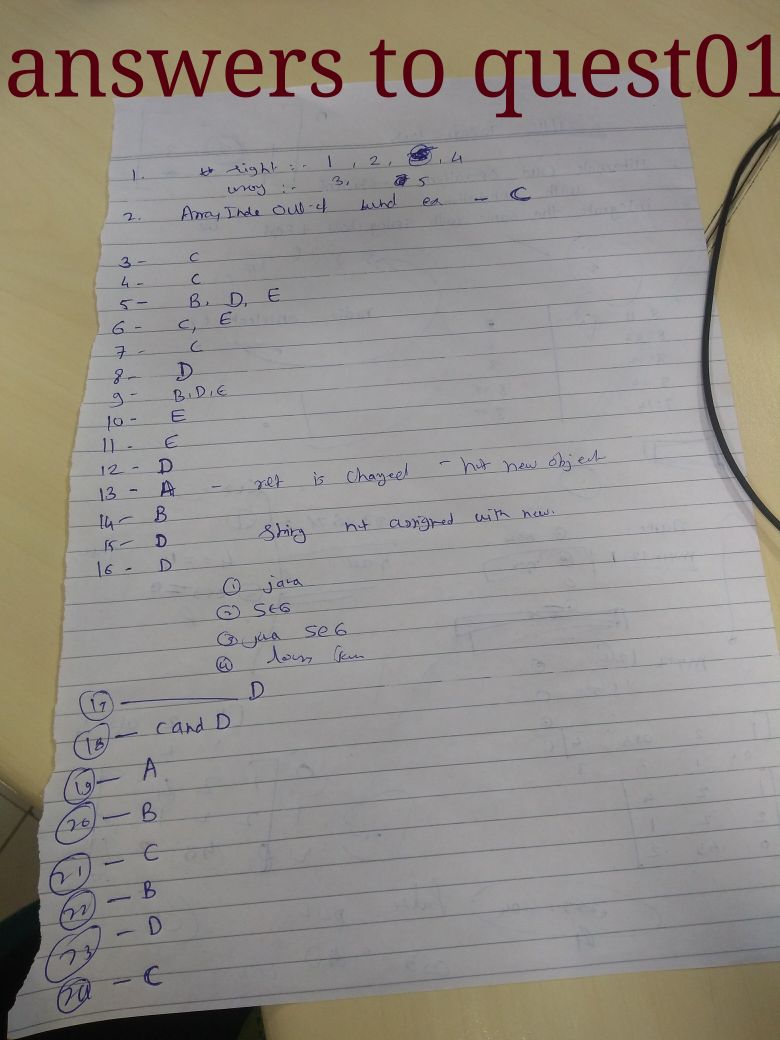 answers to quest01
1. right :- 1, 2, , 4
wrog :- 3, 5
2. Array Inde Out-of bund ex - C
3- C
4- C
5- B, D, E
6- C, E
7- C
8- D
9- B,D,E
10- E
11- E
12- D
13- A - ref is chaged - not new object
14- B String not assigned with new.
15- D
16- D
① java
② SE6
③ jaa SE6
④
17 D
18 - C and D
19 - A
20 - B
21 - C
22 - B
23 - D
24 - C